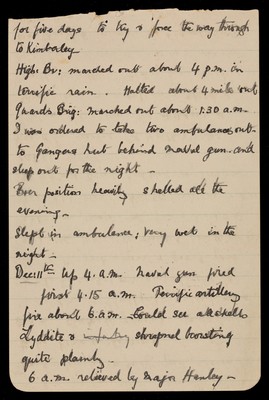 for five days to try & force the way through
to Kimberley
High: Br: marched out about 4 p.m. in
terrific rain. Halted about 4 mile out
Guards Brig: marched out about 1.30 a.m.
I was ordered to take two ambulances out
to Gangers hut behind naval gun and
sleep out for the night -
Boer position heavily shelled all the
evening -
Slept in ambulance; very wet in the
night -
Dec: 11th Up 4. a.m. Naval gun fired
first 4.15 a.m. Terrific artillery
fire about 6.a.m. Could see all shells
Lyddite & shrapnel boosting
quite plainly -
6 a.m. relieved by Major Henley -